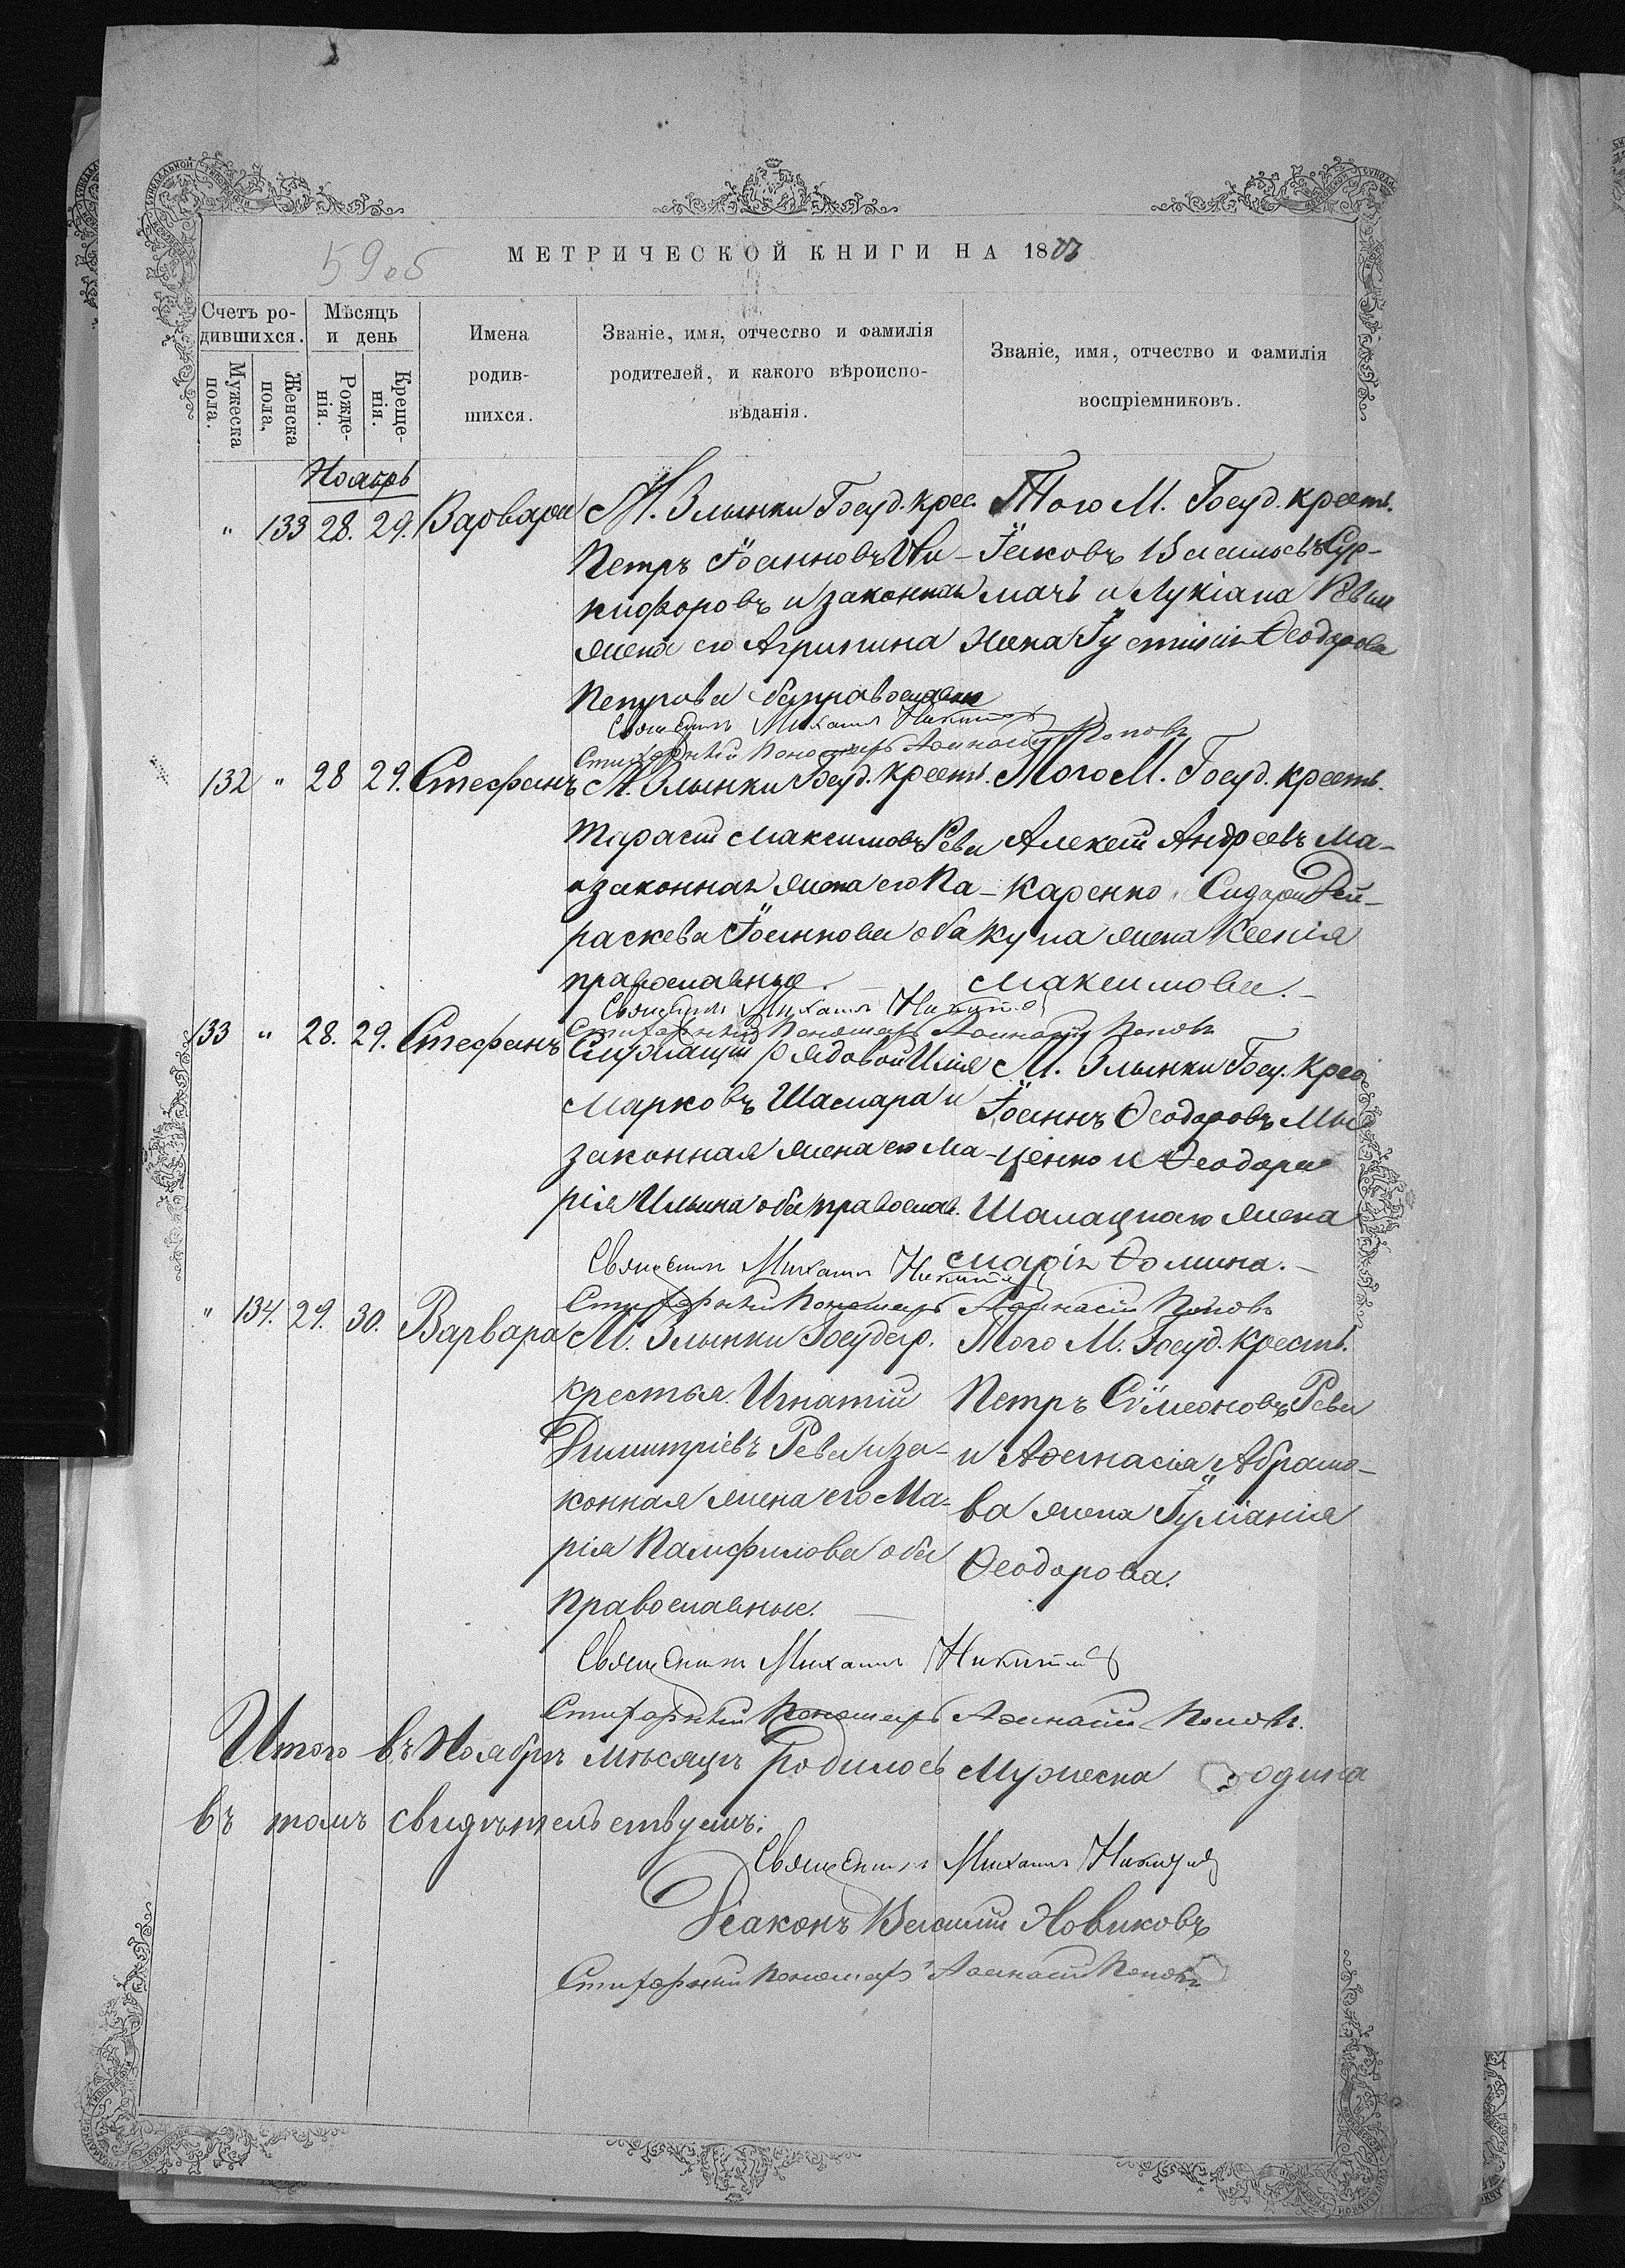 59об
МЕТРИЧЕСКОЙ КНИГИ НА 18
Счетъ ро-
дившихся.
Мужеска
пола.
Женска
пола,
Мѣсяцъ
и день
Рожде-
нія.
Креще-
нія.
Имена
родив-
шихся.
Званіе, имя, отчество и фамилія
родителей, и какого вѣроиспо-
вѣданія.
Званіе, имя, отчество и фамилія
воспріемниковъ.
Ноябрь
" 133 28. 29. Варвара
М. Злынки Госуд. крес.
Петръ Іоанновъ Ни-
кифоровъ и законная
жена его Агрипина
Петрова оба православн
Священникъ Михаилъ
Стихарный Пономарь Аѳанасій Поповъ
Того М. Госуд. крест.
Іаковъ
и Лукіана
жена Іустинія Ѳеодорова
132 " 28 29. Стефанъ
М. Злынки Госуд. крест.
Тарасій Максимовъ Рева
и законная жена его Па-
раскева Іоаннова оба
православные.
Священникъ Михаилъ
Стихарный Пономарь Аѳанасій Поповъ
Того М. Госуд. крест.
Алексѣй Андреевъ Ма-
каренко, Сидора Дей-
куна жена Ксенія
Максимова.
133 " 28. 29. Стефанъ
рядовой Илія
Марковъ Шамара и
законная жена его Ма-
рія Ильина оба православ.
Священникъ Михаилъ
Стихарный Пономарь Аѳанасій Поповъ
М. Злынки Госу. крес
Іоаннъ Ѳеодоровъ
ценко и Ѳеодора
Шалацкаго жена
Марія Ѳомина.
" 134. 29. 30. Варвара
М. Злынки Государ.
крестья. Игнатій
Димитріевъ Рева и за-
конная жена его Ма-
рія Памфилова оба
православные.
Священникъ Михаилъ
Стихарный Пономарь Аѳанасій Поповъ.
Того М. Госуд. крест.
Петръ Сѵмеоновъ Рева
и Аѳанасія Абрамо-
ва жена Іуліанія
Ѳеодорова.
Итого въ Ноябрѣ мѣсяцѣ родилось Мужеска
въ томъ свидѣтельствуемъ:
Священникъ Михаилъ
Діаконъ Василій Новиковъ
Стихарный Пономарь Аѳанасій Поповъ